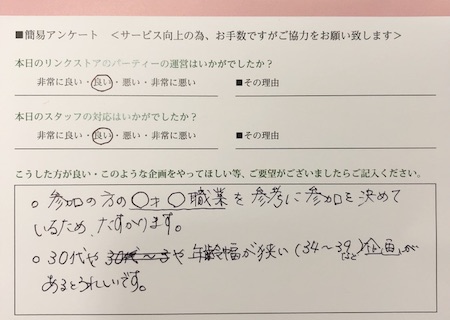 ■簡易アンケート ＜サービス向上の為、お手数ですがご協力をお願い致します＞
本日のリンクストアのパーティーの運営はいかがでしたか？
非常に良い・良い・悪い・非常に悪い ■その理由
本日のスタッフの対応はいかがでしたか？
非常に良い・良い・悪い・非常に悪い ■その理由
こうした方が良い・このような企画をやってほしい等、ご要望がございましたらご記入ください。
○ 参加の方の○才○職業を参考に参加を決めて
いるため、たすかります。
○ 30代や 年齢幅が狭い (34〜39)など 企画が
あるとうれしいです。